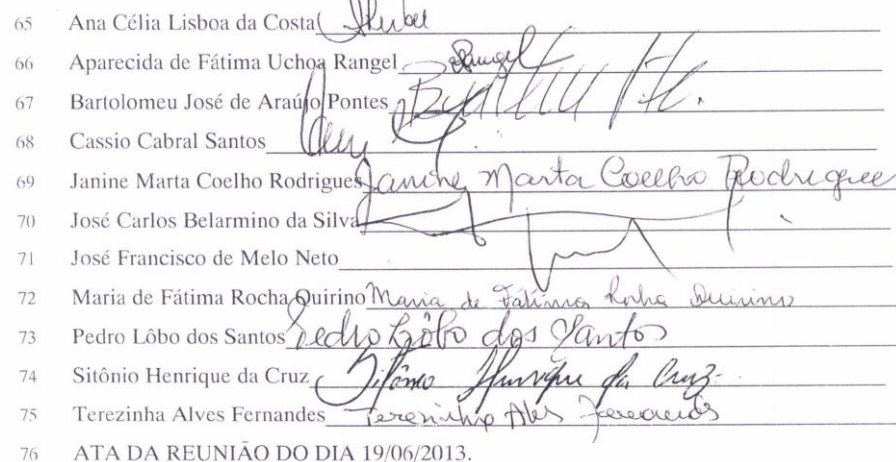 65 Ana Célia Lisboa da Costa
66 Aparecida de Fátima Uchoa Rangel Rangel
67 Bartolomeu José de Araújo Pontes
68 Cassio Cabral Santos
69 Janine Marta Coelho Rodrigues Janine Marta Coelho Rodrigues
70 José Carlos Belarmino da Silva
71 José Francisco de Melo Neto
72 Maria de Fátima Rocha Quirino Maria de Fátima Rocha Quirino
73 Pedro Lôbo dos Santos Pedro Lôbo dos Santos
74 Sitônio Henrique da Cruz Sitônio Henrique da Cruz
75 Terezinha Alves Fernandes Terezinha Alves Fernandes
76 ATA DA REUNIÃO DO DIA 19/06/2013.